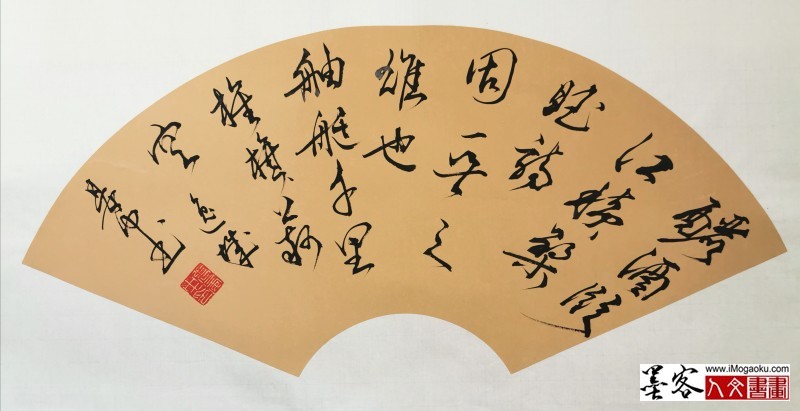 釃酒臨
江橫槊
賦詩
固一世之
雄也
舳艫千里
旌旗蔽
空
墨客
www.iMogaoku.com
人文書畫